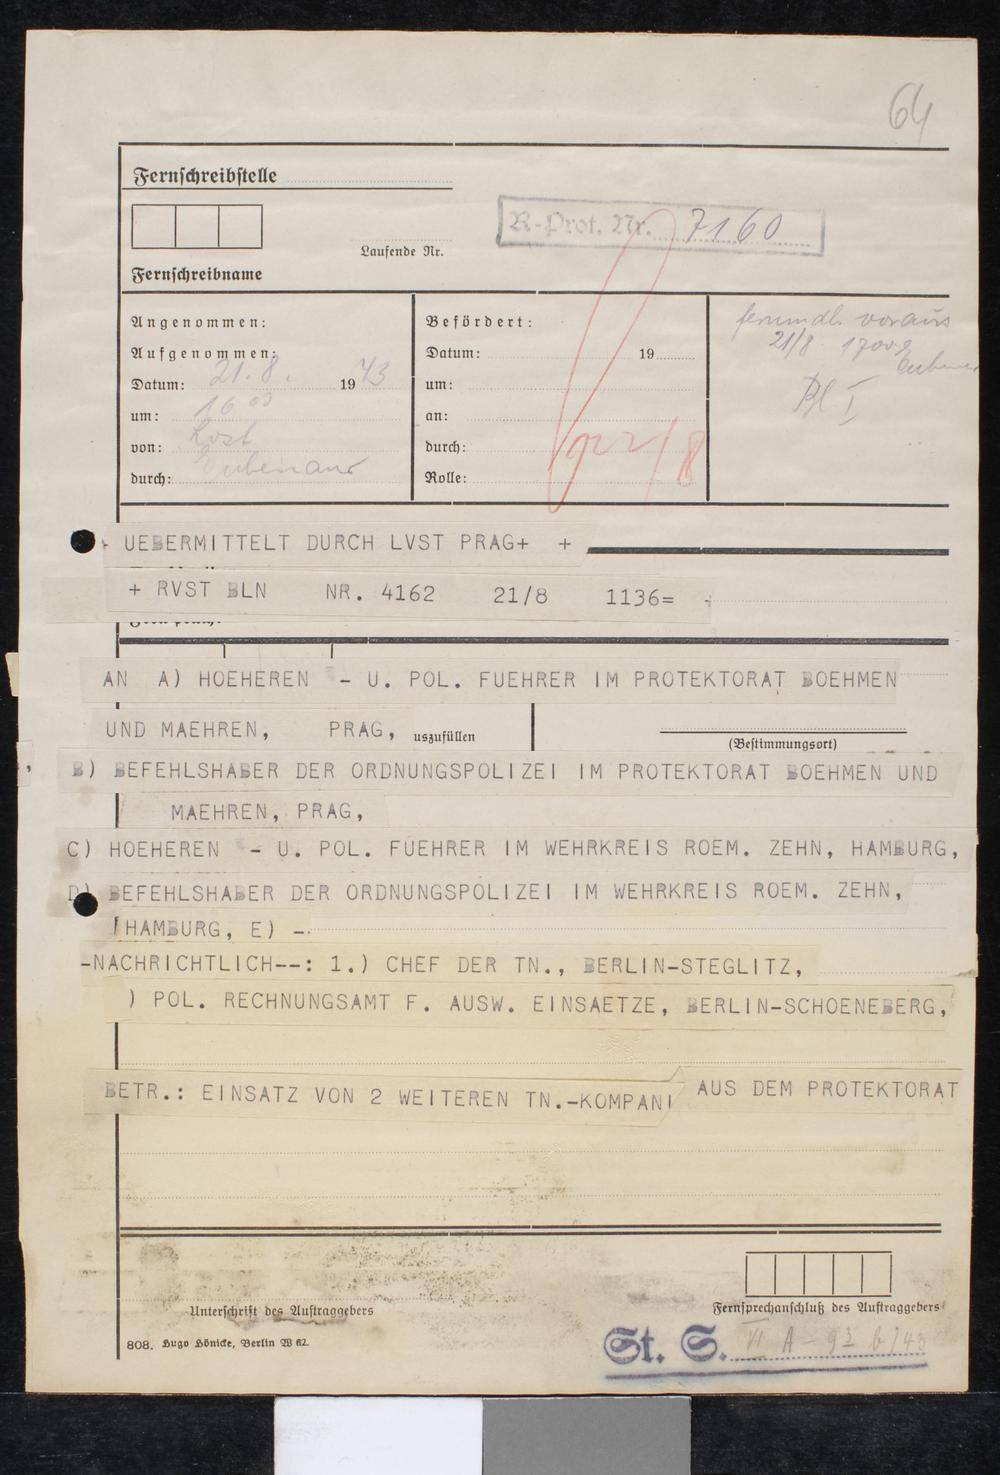 64
Fernschreibstelle
R-Prot. Nr. 7160
Laufende Nr.
Fernschreibname
Angenommen:
Aufgenommen:
Datum: 21.8. 1943
um: 16 00
von:
durch:
Befördert:
Datum: 19
um:
an:
durch:
Rolle:
voraus
21/8 1700
+ UEBERMITTELT DURCH LVST PRAG+ +
+ RVST BLN NR. 4162 21/8 1136=
AN A) HOEHEREN - U. POL. FUEHRER IM PROTEKTORAT BOEHMEN
UND MAEHREN, PRAG, uszufüllen
(Bestimmungsort)
B) BEFEHLSHABER DER ORDNUNGSPOLIZEI IM PROTEKTORAT BOEHMEN UND
MAEHREN, PRAG,
C) HOEHEREN - U. POL. FUEHRER IM WEHRKREIS ROEM. ZEHN, HAMBURG,
D) BEFEHLSHABER DER ORDNUNGSPOLIZEI IM WEHRKREIS ROEM. ZEHN,
HAMBURG, E) -.
-NACHRICHTLICH--: 1.) CHEF DER TN., BERLIN-STEGLITZ,
) POL. RECHNUNGSAMT F. AUSW. EINSAETZE, BERLIN-SCHOENEBERG,
BETR.: EINSATZ VON 2 WEITEREN TN.-KOMPANI AUS DEM PROTEKTORAT
Unterschrift des Auftraggebers
Fernsprechanschluß des Auftraggebers
808. Hugo Hönicke, Berlin W 62.
St. S.